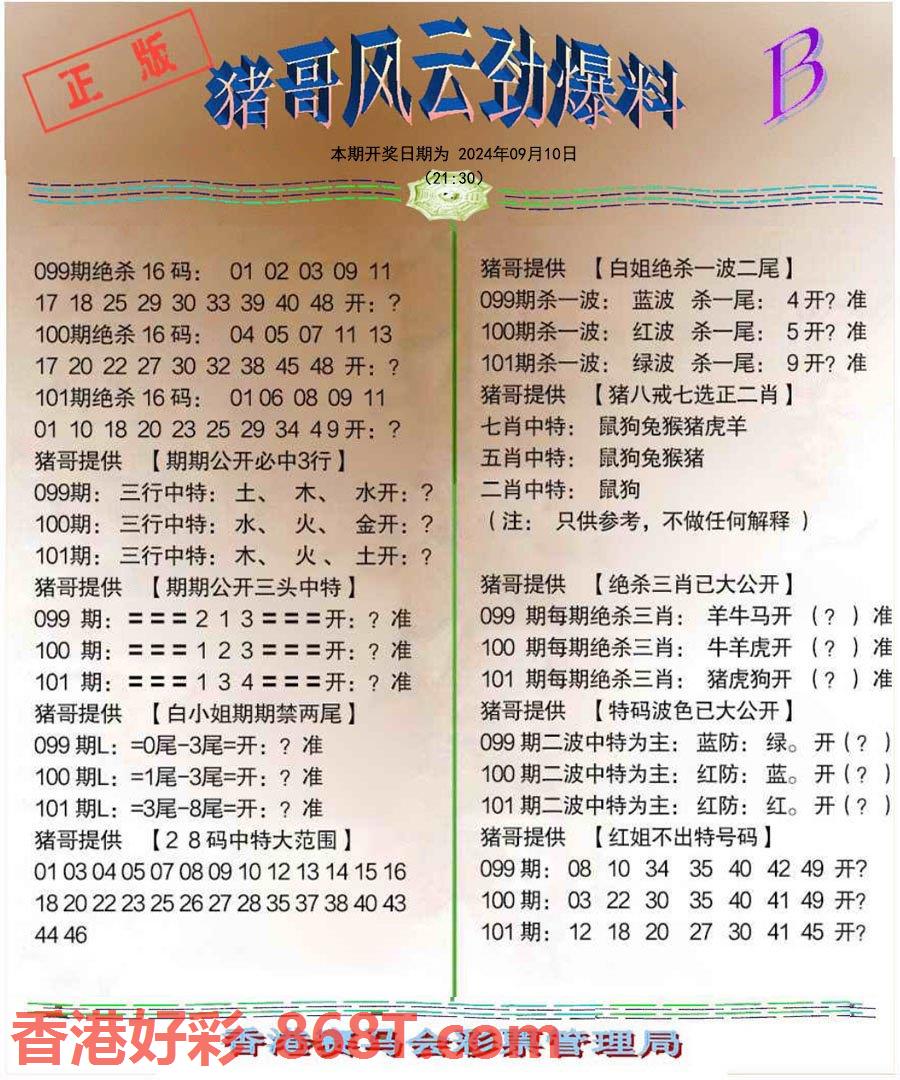 正版
猪哥风云劲爆料
B
本期开奖日期为 2024年09月10日
(21:30)
099期绝杀16码： 01 02 03 09 11
17 18 25 29 30 33 39 40 48 开：?
100期绝杀16码： 04 05 07 11 13
17 20 22 27 30 32 38 45 48 开：?
101期绝杀16码： 01 06 08 09 11
01 10 18 20 23 25 29 34 4 9 开：?
猪哥提供 【期期公开必中3行】
099期：三行中特：土、 木、 水开：?
100期：三行中特：水、 火、 金开：?
101期：三行中特：木、 火 、 土开：?
猪哥提供 【期期公开三头中特】
099 期：===2 1 3===开：? 准
100 期：===1 2 3===开：? 准
101 期：===1 3 4===开：? 准
猪哥提供 【白小姐期期禁两尾】
099期L：=0尾-3尾=开：? 准
100期L：=1尾-3尾=开：? 准
101期L：=3尾-8尾=开：? 准
猪哥提供 【2 8码中特大范围】
01 03 04 05 07 08 09 10 12 13 14 15 16
18 20 22 23 25 26 27 28 35 37 38 40 43
44 46
猪哥提供 【白姐绝杀一波二尾】
099期杀一波： 蓝波 杀一尾： 4开? 准
100期杀一波： 红波 杀一尾： 5开? 准
101期杀一波： 绿波 杀一尾： 9开? 准
猪哥提供 【猪八戒七选正二肖】
七肖中特： 鼠狗兔猴猪虎羊
五肖中特： 鼠狗兔猴猪
二肖中特： 鼠狗
（注： 只供参考，不做任何解释 ）
猪哥提供 【绝杀三肖已大公开】
099 期每期绝杀三肖： 羊牛马开 （? ）准
100 期每期绝杀三肖： 牛羊虎开 （? ）准
101 期每期绝杀三肖： 猪虎狗开 （? ）准
猪哥提供 【特码波色已大公开】
099 期二波中特为主：蓝防：绿。开（? ）
100 期二波中特为主：红防：蓝。开（? ）
101 期二波中特为主：红防：红。开（? ）
猪哥提供 【红姐不出特号码】
099 期： 08 10 34 35 40 42 49 开?
100 期： 03 22 30 35 40 41 49 开?
101 期： 12 18 20 27 30 41 45 开?
香港好彩 868T.com
香港赛马会彩票管理局